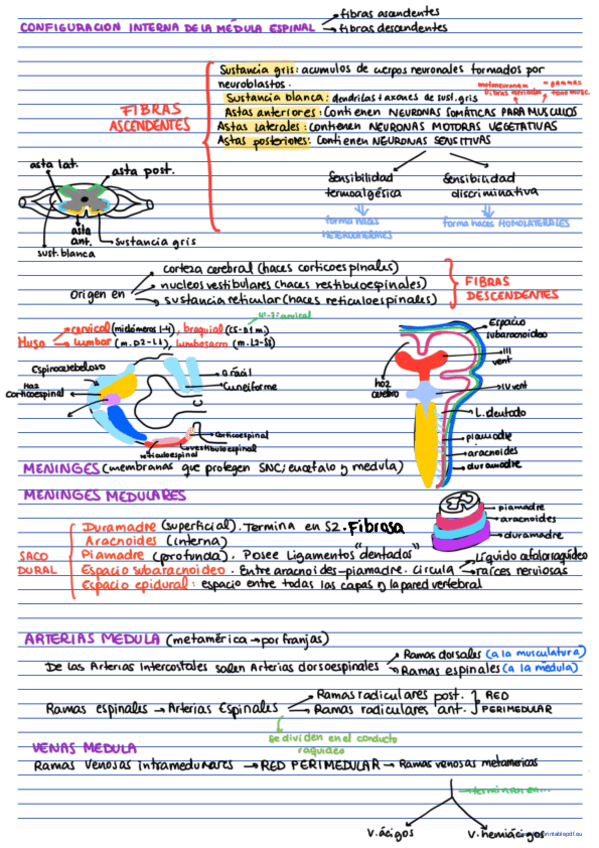 fibras ascendentes
CONFIGURACION INTERNA DE LA MÉDULA ESPINAL → fibras descendentes
Sustancia gris: acumulos de cuerpos neuronales formados por
neuroblastos.
Sustancia blanca: dendritas + axones de sust. gris
FIBRAS
ASCENDENTES
Astas anteriores: Contienen NEURONAS SOMÁTICAS PARA MUSCULOS
Astas laterales: contienen NEURONAS MOTORAS VEGETATIVAS
Astas posteriores: Contienen NEURONAS SENSITIVAS
asta lat.
asta post.
Sensibilidad
termoalgésica
Sensibilidad
discriminativa
forma haces
forma haces HOMOLATERALES
asta
ant.
sustancia gris
sust. blanca
Origen en
corteza cerebral (haces corticoespinales)
nucleos vestibulares (haces vestibuloespinales)
sustancia reticular (haces reticuloespinales)
FIBRAS
DESCENDENTES
Huso
cervical (miolómeros 1-4), braquial (C5-D1 m.)
lumbar (m. D2-L1), lumbosacro (m. L2-S5)
Espinocerebeloso
Haz
corticoespinal
Grácil
Cuneiforme
corticoespinal
vestibuloespinal
reticuloespinal
Espacio
subaracnoideo
III
vent
hoz
cerebro
IV vent
L. dentado
piamadre
aracnoides
duramadre
MENINGES (membranas que protegen SNC; encéfalo y medula)
MENINGES MEDULARES
piamadre
aracnoides
duramadre
SACO
DURAL
Duramadre (superficial). Termina en S2. Fibrosa
Aracnoides (interna)
Piamadre (profunda). Posee Ligamentos "dentados"
Espacio subaracnoideo. Entre aracnoides-piamadre. Circula
Líquido cefalorraquídeo
raíces nerviosas
Espacio epidural: espacio entre todas las capas y la pared vertebral
ARTERIAS MEDULA (metamérica → por franjas)
De las Arterias Intercostales salen Arterias dorsoespinales
Ramas dorsales (a la musculatura)
Ramas espinales (a la médula)
Ramas espinales → Arterias Espinales
Ramas radiculares post.
Ramas radiculares ant.
RED
PERIMEDULAR
se dividen en el conducto
raquideo
VENAS MEDULA
Ramas Venosas Intramedulares → RED PERIMEDULAR → Ramas venosas metamericas
terminan en...
V. ácigos
V. hemiácigos